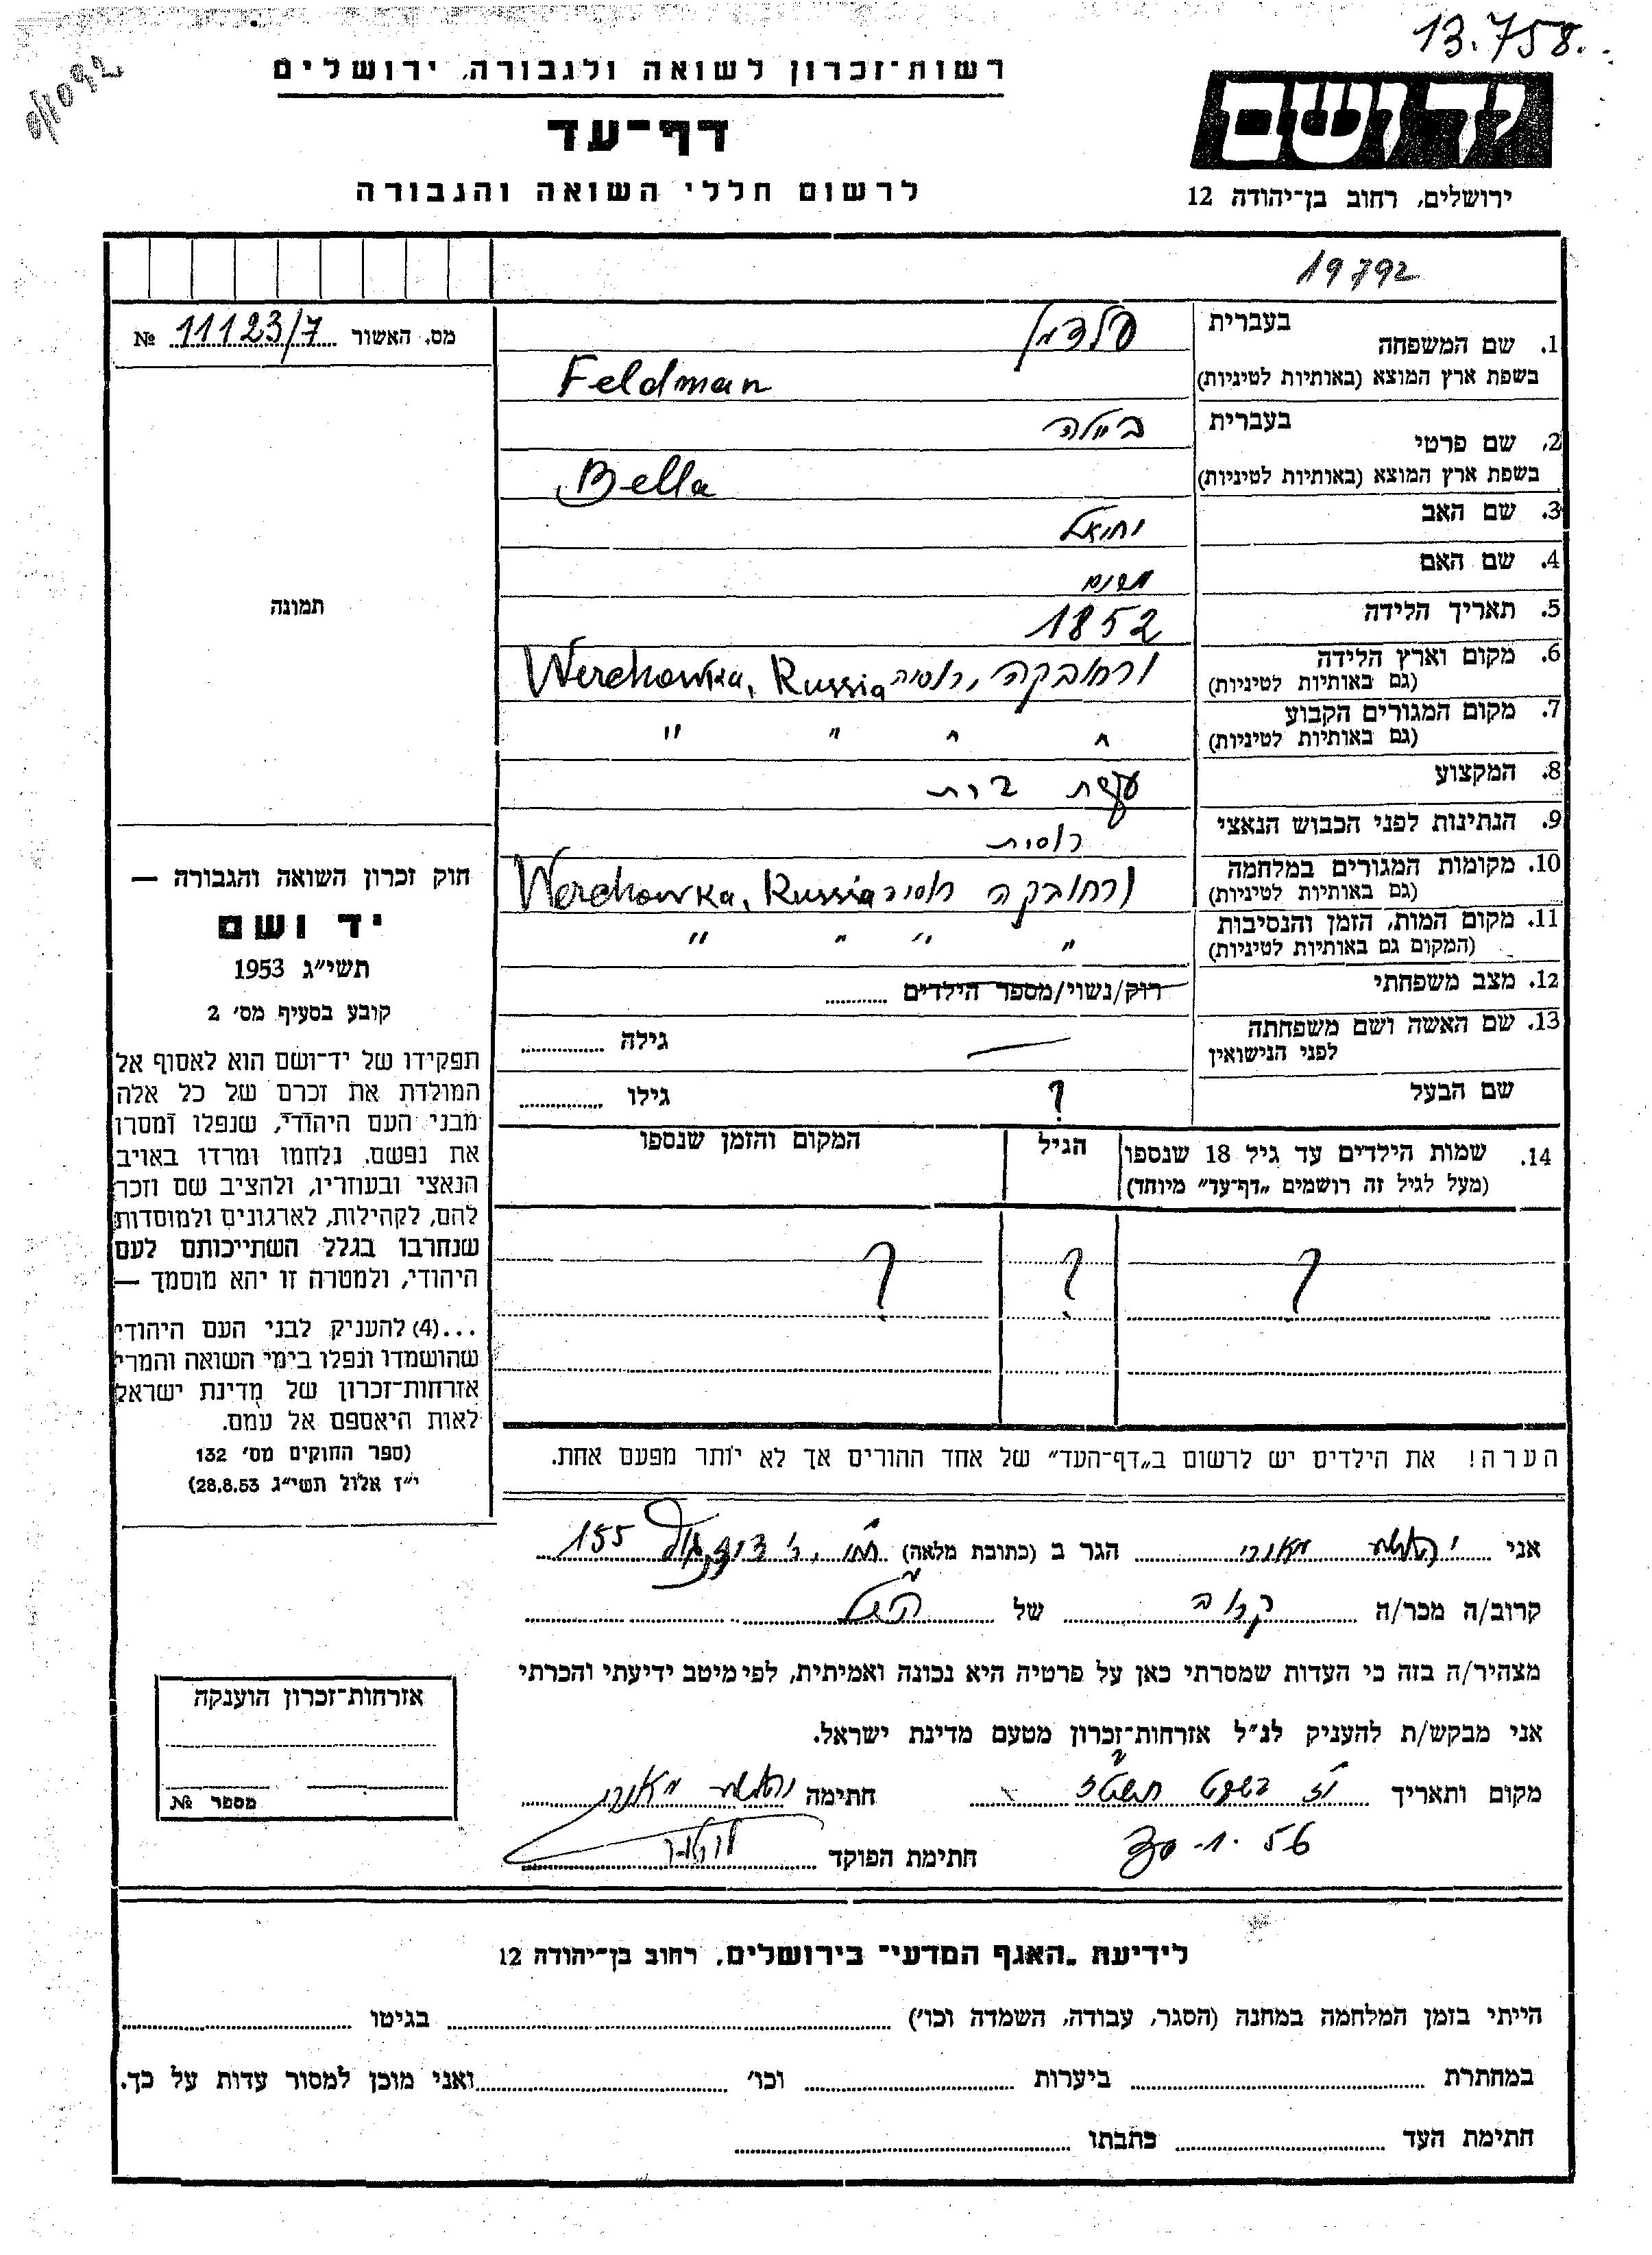 13.758
רשות־זכרון לשואה ולגבורה, ירושלים
דף־עד
לרשום חללי השואה והגבורה
ידושם
ירושלים, רחוב בן־יהודה 12
19792
מס. האשור 11123/7 №
1. שם המשפחה
בעברית
פלדמן
בשפת ארץ המוצא (באותיות לטיניות)
Feldman
2. שם פרטי
בעברית
ביילה
בשפת ארץ המוצא (באותיות לטיניות)
Bella
3. שם האב
יחיאל
4. שם האם
5. תאריך הלידה
1852
6. מקום וארץ הלידה
(גם באותיות לטיניות)
ורחובקה, רוסיה Werchowka, Russia
7. מקום המגורים הקבוע
(גם באותיות לטיניות)
" " " "
8. המקצוע
עקרת בית
9. הנתינות לפני הכבוש הנאצי
רוסית
10. מקומות המגורים במלחמה
(גם באותיות לטיניות)
ורחובקה רוסיה Werchowka, Russia
11. מקום המות, הזמן והנסיבות
(המקום גם באותיות לטיניות)
" " " "
12. מצב משפחתי
רוק/נשוי/מספר הילדים
13. שם האשה ושם משפחתה
לפני הנישואין
— גילה
שם הבעל
? גילו
14. שמות הילדים עד גיל 18 שנספו
(מעל לגיל זה רושמים „דף־עד" מיוחד)
הגיל
המקום והזמן שנספו
? ? ?
הערה! את הילדים יש לרשום ב„דף־העד" של אחד ההורים אך לא יותר מפעם אחת.
תמונה
חוק זכרון השואה והגבורה —
יד ושם
תשי״ג 1953
קובע בסעיף מס׳ 2
תפקידו של יד־ושם הוא לאסוף אל
המולדת את זכרם של כל אלה
מבני העם היהודי, שנפלו ומסרו
את נפשם, נלחמו ומרדו באויב
הנאצי ובעוזריו, ולהציב שם וזכר
להם, לקהילות, לארגונים ולמוסדות
שנחרבו בגלל השתייכותם לעם
היהודי, ולמטרה זו יהא מוסמך —
...(4) להעניק לבני העם היהודי
שהושמדו ונפלו בימי השואה והמרי
אזרחות־זכרון של מדינת ישראל
לאות היאספם אל עמם.
(ספר החוקים מס׳ 132
י״ז אלול תשי״ג 28.8.53)
אני מאורי הגר ב (כתובת מלאה) 155
קרוב/ה מכר/ה קרובה של הנ״ל
מצהיר/ה בזה כי העדות שמסרתי כאן על פרטיה היא נכונה ואמיתית, לפי מיטב ידיעתי והכרתי
אני מבקש/ת להעניק לנ״ל אזרחות־זכרון מטעם מדינת ישראל.
מקום ותאריך י״ז בשבט תשט״ז חתימה מאורי
30.1.56 חתימת הפוקד
אזרחות־זכרון הוענקה
מספר №
לידיעת „האגף המדעי" בירושלים, רחוב בן־יהודה 12
הייתי בזמן המלחמה במחנה (הסגר, עבודה, השמדה וכו׳) בגיטו
במחתרת ביערות וכו׳ ואני מוכן למסור עדות על כך.
חתימת העד כתבתו